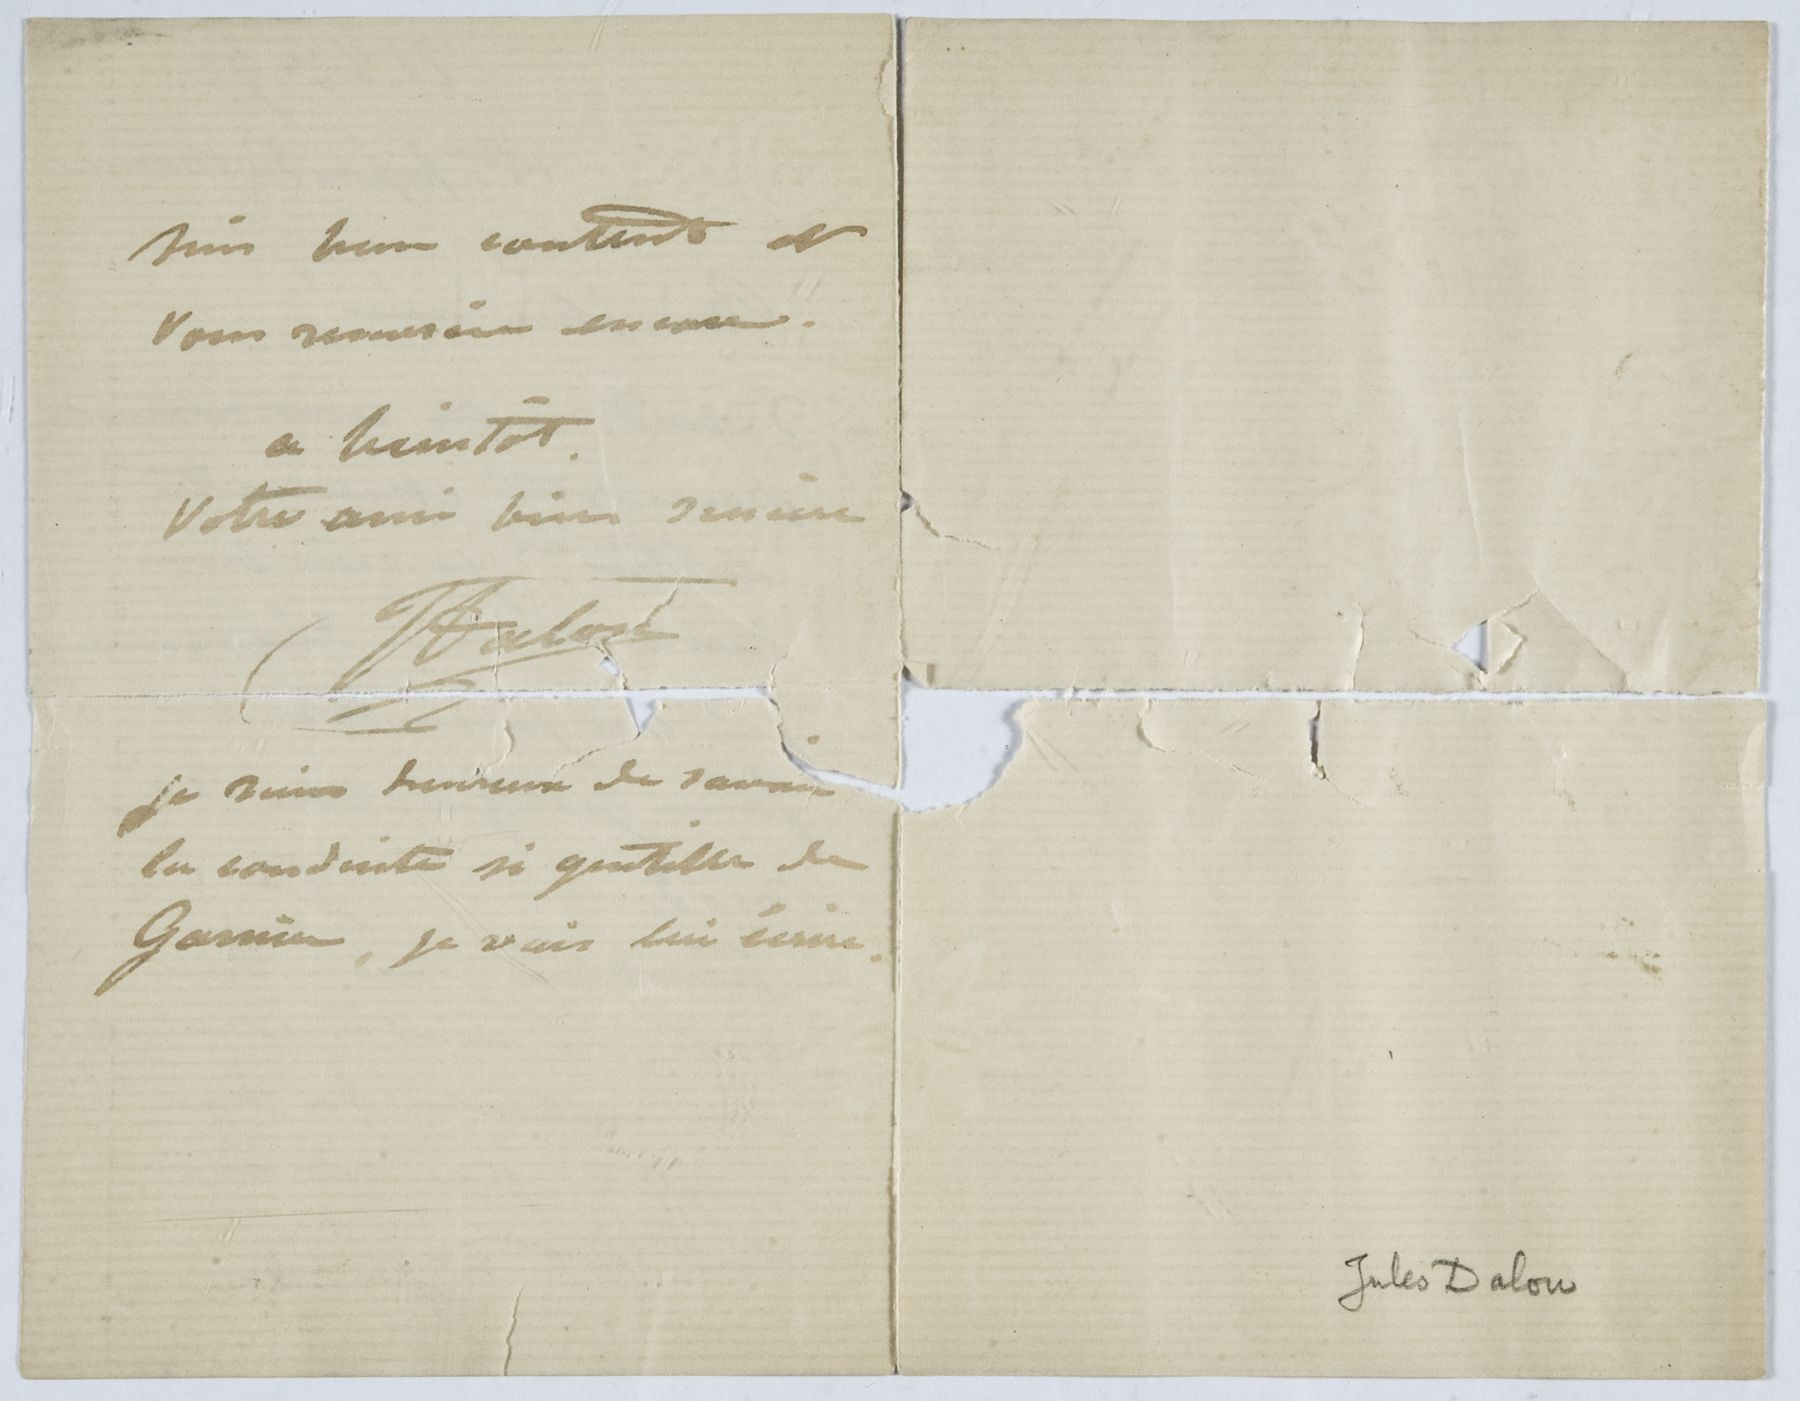 suis bien content et
vous remercie encore.
a bientôt.
Votre ami bien sincère
JDalou
je suis heureux de savoir
la conduite si gentille de
Garnier, je vais lui écrire.
Jules Dalou